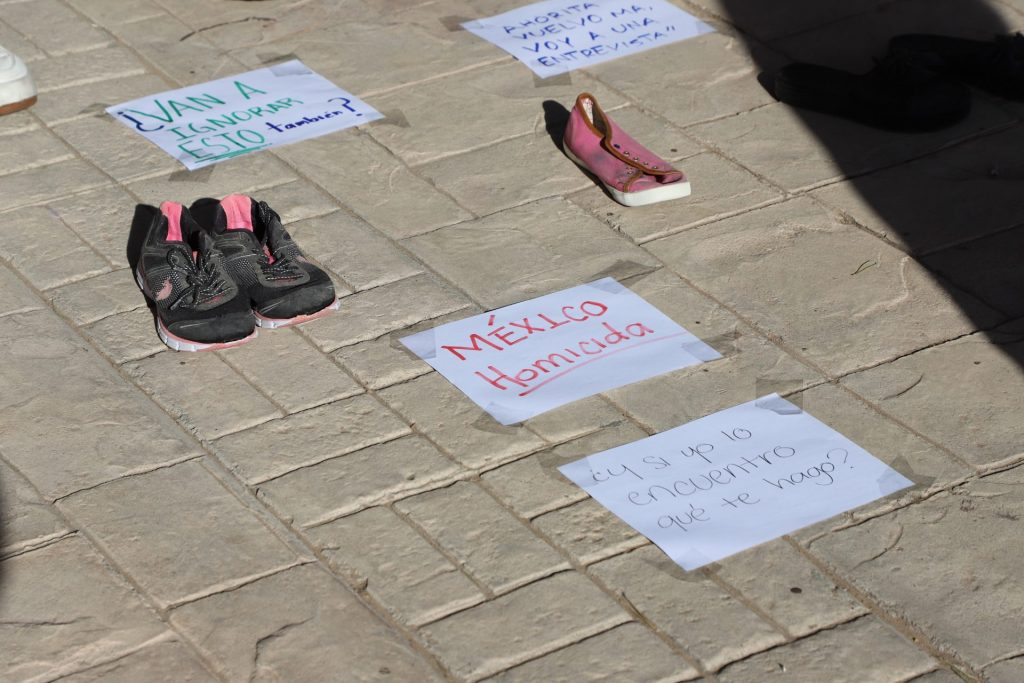 AHORITA
VUELVO MA,
VOY A UNA
ENTREVISTA"
¿VAN A
IGNORAR
ESTO también?
MÉXICO
Homicida
¿Y si yo lo
encuentro
qué te hago?